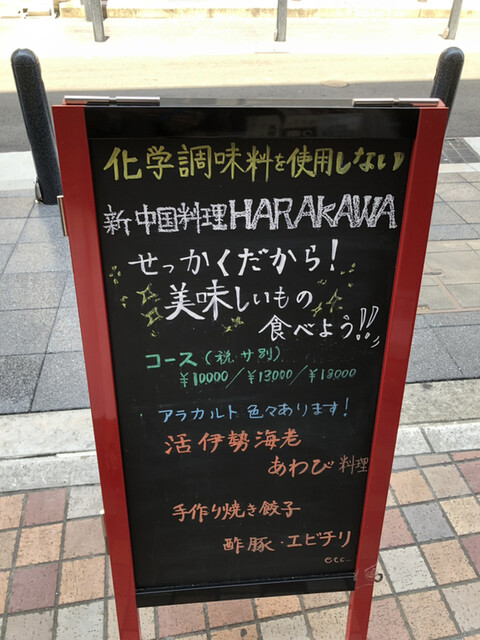 化学調味料を使用しない
新中国料理HARAKAWA
せっかくだから!
美味しいもの
食べよう!!
コース(税サ別)
¥10000/¥13000/¥18000
アラカルト 色々あります!
活伊勢海老
あわび料理
手作り焼き餃子
酢豚・エビチリ
etc...